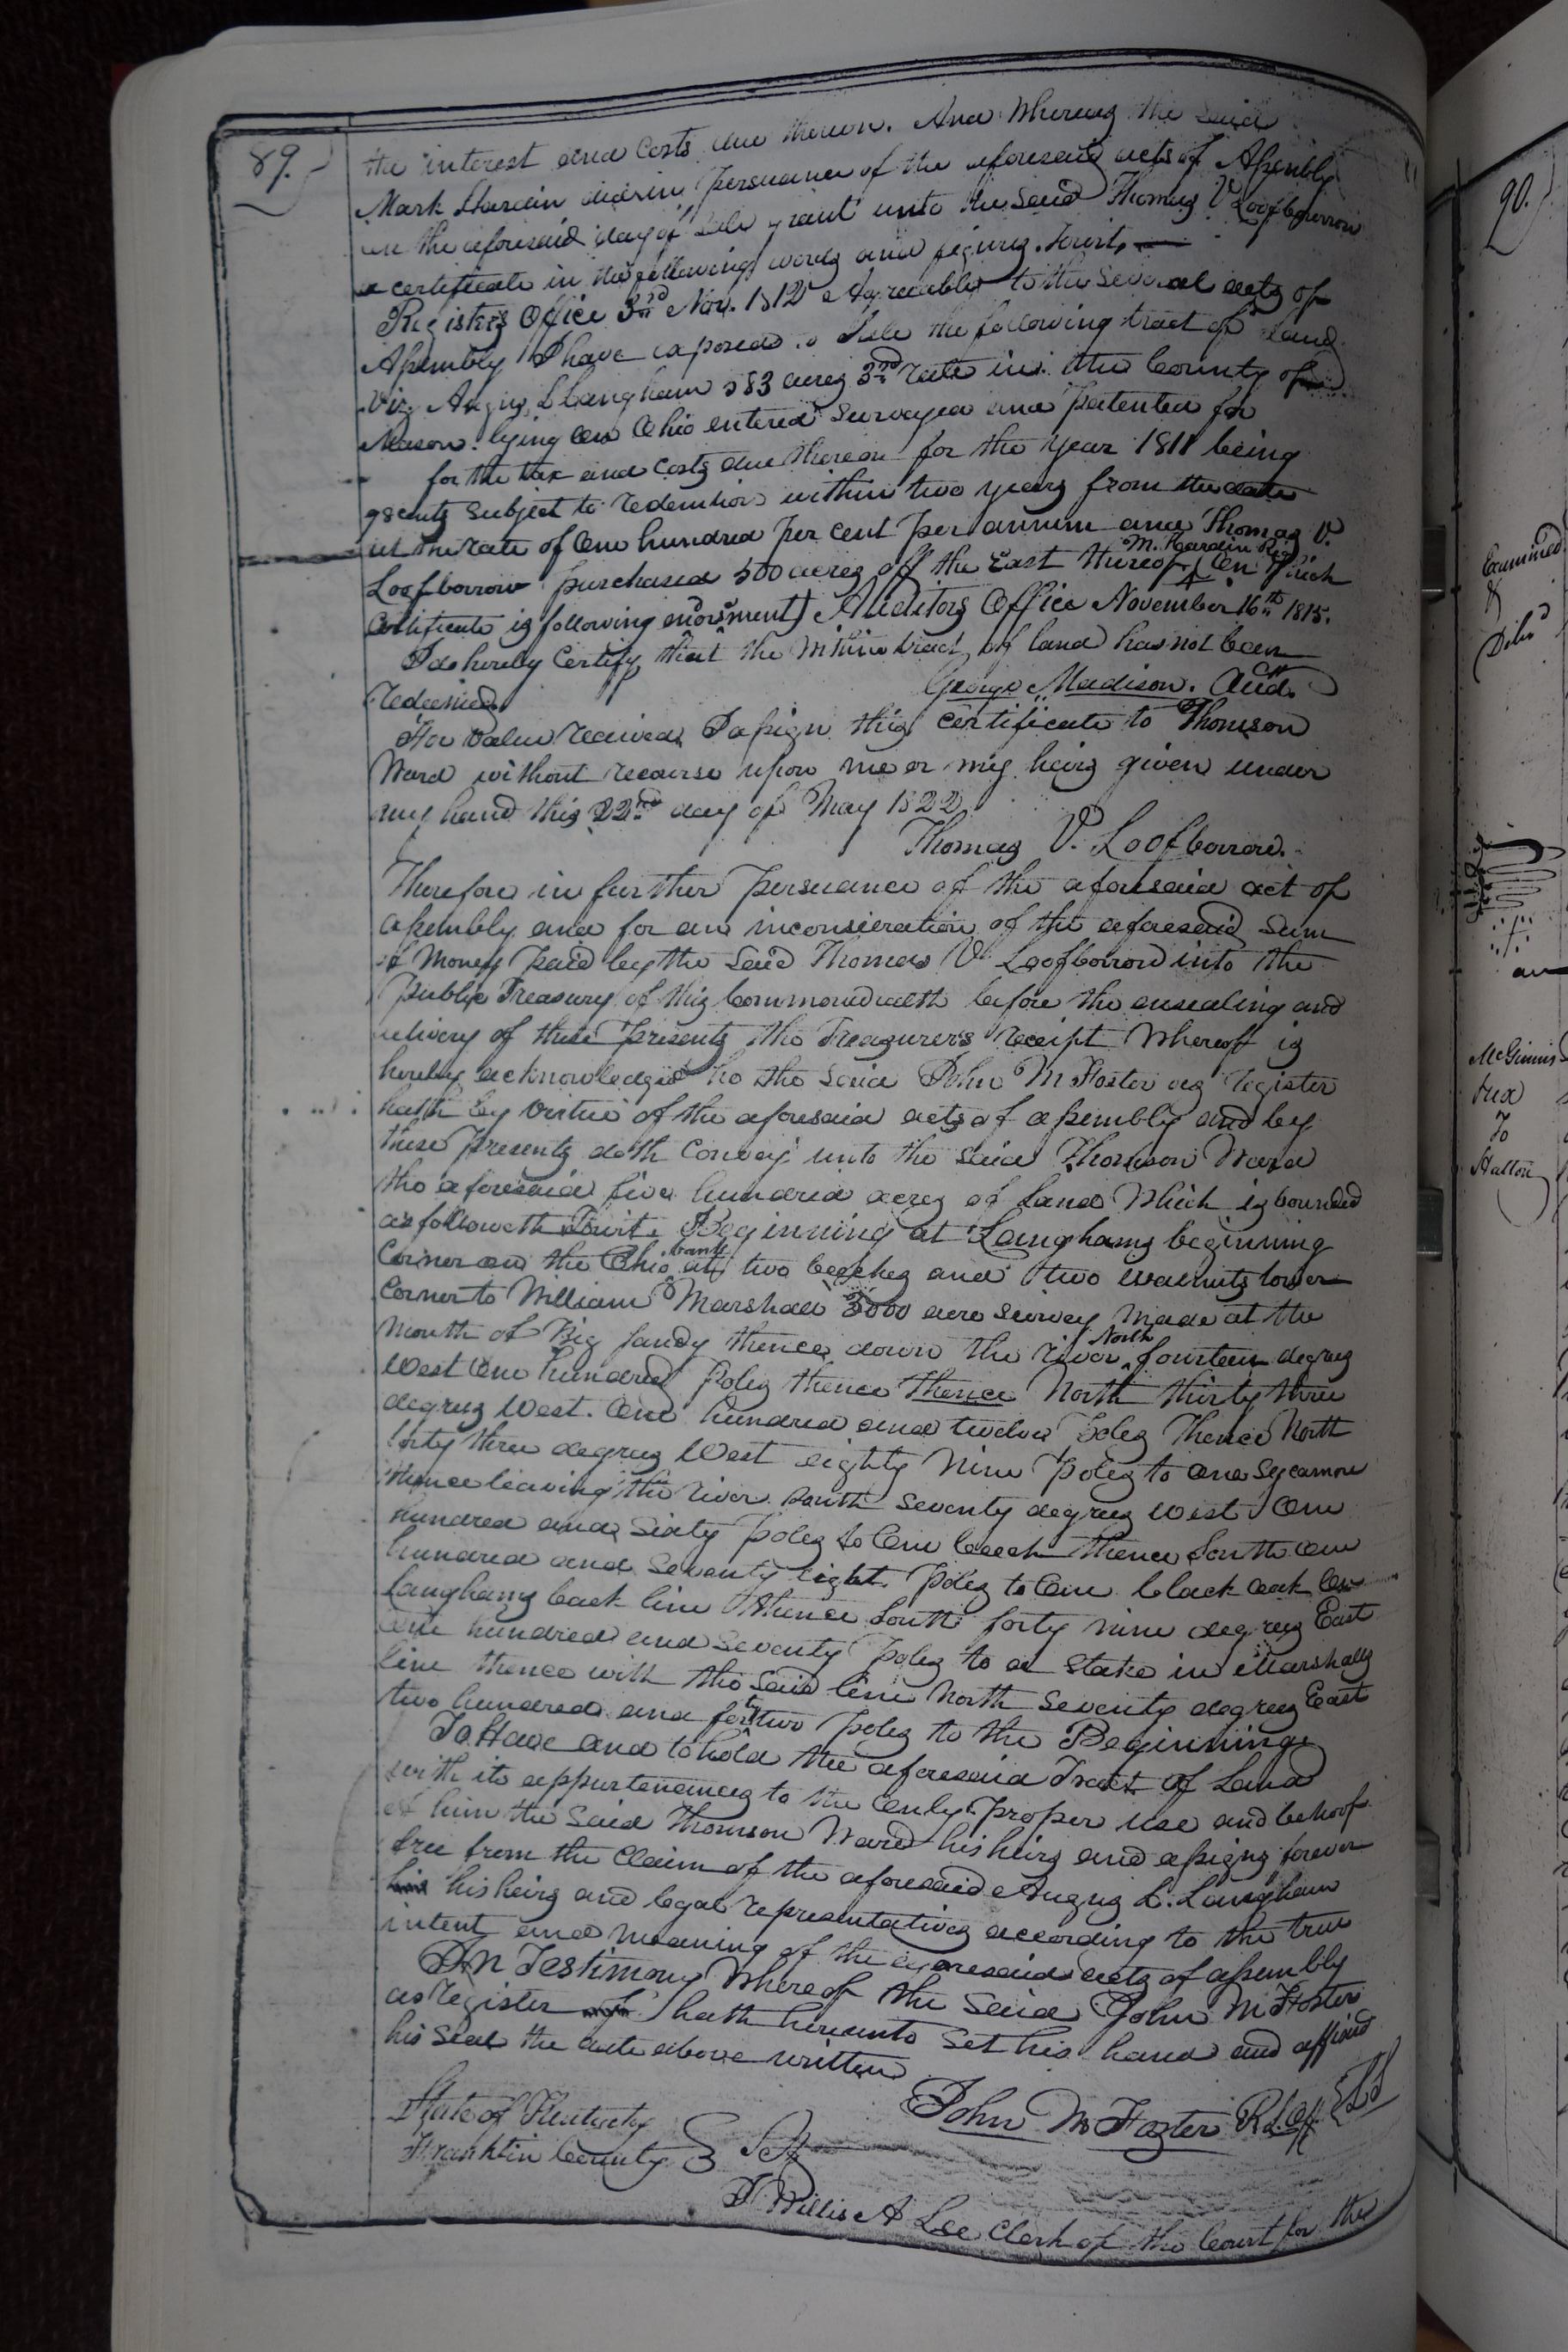 89.
the interest and costs due thereon. And Whereas the Said
Mark Hardin did in persuance of the aforesaid acts of Assembly
on the aforesaid day of Sale grant unto the Said Thomas V Loofbourrow
a certificate in the following words and figures. Towit,
Registers Office 3rd Nov. 1812 Agreeable to the several acts of
Assembly I have exposed to Sale the following tract of Land
Viz Angus L Langham 583 acres 3rd rate in the County of
Mason lying on Ohio entered Surveyed and patented for
for the tax and costs due thereon for the year 1811 being
cents Subject to redemtion within two years from the date
at the rate of One hundred per cent per annum and Thomas V.
Loofborrow purchased 500 acres off the East thereof M. Hardin Reg. (On Which
Certificate is following endorsment) Auditors Office November 16th 1815.
I do hereby Certify that the within tract of land has not been
redeemed George Madison. Aud.
For Value received I assign this certificate to Thomson
Ward without recourse upon me or my heirs given under
my hand this 22nd day of May 1822
Thomas V. Loofborrow.
Therefore in further persuance of the aforesaid act of
assembly and for an inconsieration of the aforesaid Sum
of Money paid by the Said Thomas V Loofborrow into the
Public Treasury of this Commonwealth before the ensealing and
delivery of these presents the Treasurers receipt Whereof is
hereby acknowledged ho the Said John M Foster as register
hath by Virtue of the aforesaid acts of assembly and by
these presents doth Convey unto the Said Thomson Ward
the aforesaid five hundred acres of land Which is bounded
as followeth Towit. Beginning at Langhams beginning
Corner on the Ohio bank at two beeches and two walnuts lower
Corner to William Marshall 3000 acre Survey Made at the
mouth of Big Sandy thence down the river North fourteen degrees
West One hundred poles thence Thence North thirty three
degrees West. One hundred and twelve poles Thence North
forty three degrees West eighty Nine poles to one Sycamore
thence leaving the river South Seventy degrees West One
hundred and Sixty poles to One beech thence South One
hundred and Seventy eight poles to One black oak On
Langhams back line thence South forty nine degrees East
One hundred and Seventy poles to a Stake in Marshalls
line thence with the Said line North Seventy degrees East
two hundred and forty two poles to the Beginning
To Have and to hold the aforesaid Tract of Land
with its appurtenances to the Only proper use and behoof
of him the Said Thomson Ward his heirs and assigns forever
free from the Claim of the aforesaid Angus L. Langham
his heirs and legal representatives according to the true
intent and meaning of the aforesaid acts of assembly
In Testimony Whereof the Said John M Foster
as register hath hereunto Set his hand and affixed
his Seal the date above written
John M Foster R L Off LS
State of Kentucky
Franklin County Sct
I Willis A Lee Clerk of the Court for the
90.
Examined
&
Deld
McGinnis
To